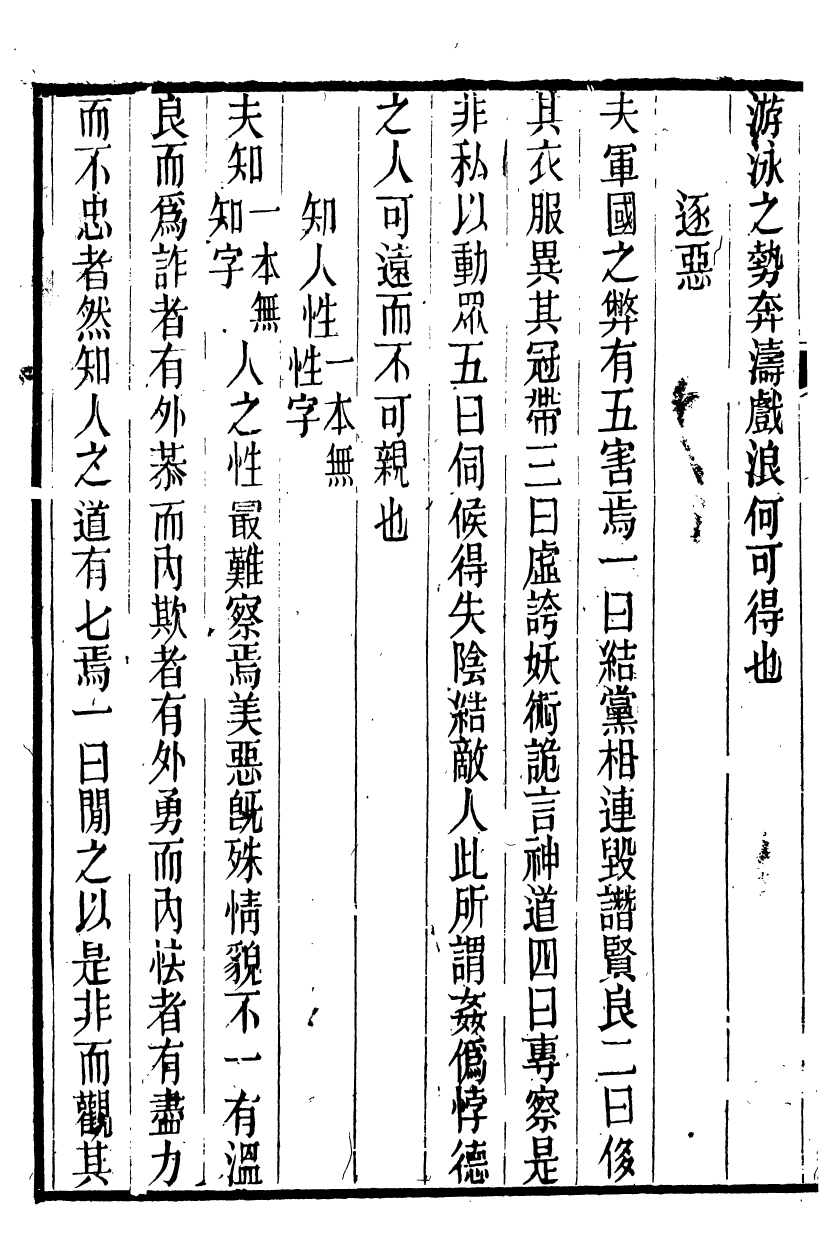 游泳之勢奔濤戲浪何可得也
逐惡
夫軍國之弊有五害焉一曰結黨相連毀譖賢良二曰侈
其衣服異其冠帶三曰虛誇妖術詭言神道四曰專察是
非私以動眾五曰伺候得失陰結敵人此所謂姦僞悖德
之人可遠而不可親也
知人性一本無性字
夫知一本無知字人之性最難察焉美惡旣殊情貌不一有溫
良而爲詐者有外恭而內欺者有外勇而內怯者有盡力
而不忠者然知人之道有七焉一曰閒之以是非而觀其